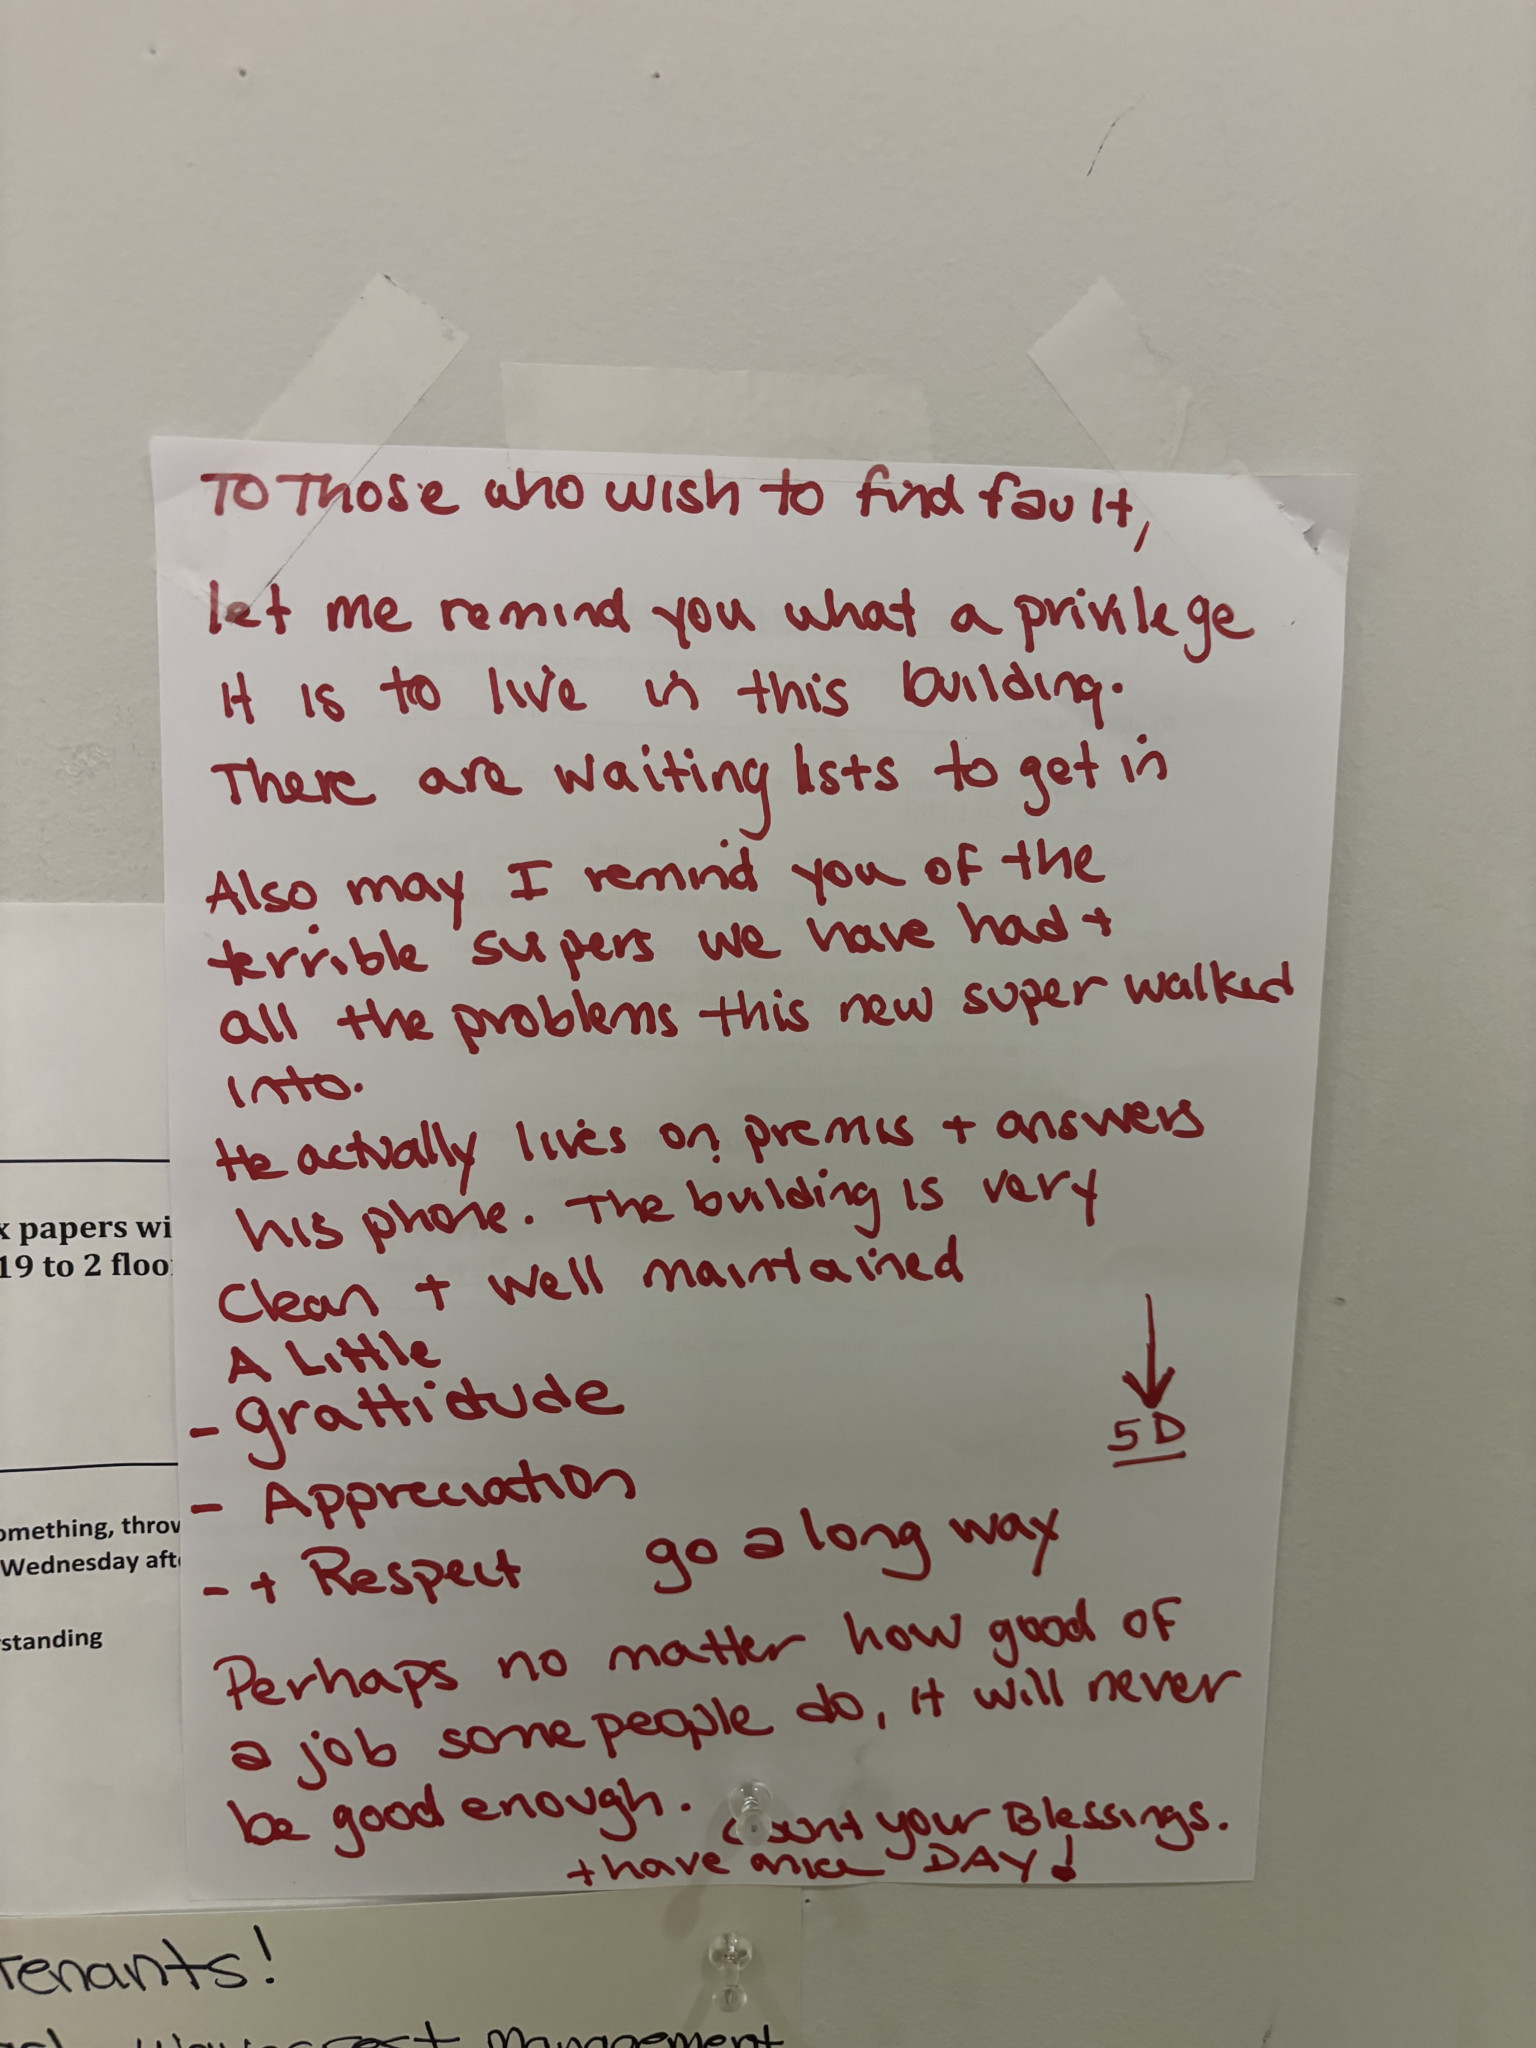 To Those who wish to find fault,
let me remind you what a privilege
it is to live in this building.
There are waiting lists to get in
Also may I remind you of the
terrible supers we have had +
all the problems this new super walked
into.
He actually lives on premis + answers
his phone. The building is very
Clean + well maintained
A Little
- grattidude
- Appreciation
- + Respect go a long way
5D
Perhaps no matter how good of
a job some people do, it will never
be good enough. Count your Blessings.
+ have a nice DAY!
x papers wi
19 to 2 floo
omething, throw
Wednesday afte
rstanding
Tenants!
Management